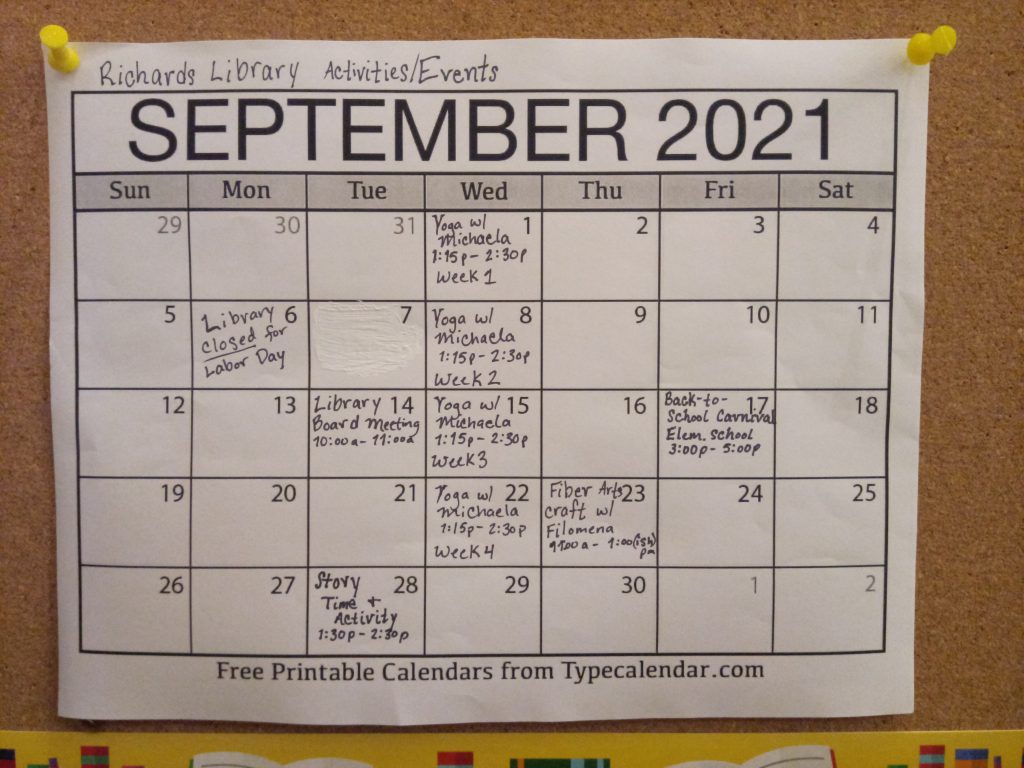 Richards Library Activities/Events
SEPTEMBER 2021
Sun Mon Tue Wed Thu Fri Sat
29
30
31
1
Yoga w/
Michaela
1:15p - 2:30p
Week 1
2
3
4
5
6
Library
closed for
Labor Day
7
8
Yoga w/
Michaela
1:15p - 2:30p
Week 2
9
10
11
12
13
14
Library
Board Meeting
10:00a - 11:00a
15
Yoga w/
Michaela
1:15p - 2:30p
Week 3
16
17
Back-to-
School Carnival
Elem. School
3:00p - 5:00p
18
19
20
21
22
Yoga w/
Michaela
1:15p - 2:30p
Week 4
23
Fiber Arts
craft w/
Filomena
- 1:00(ish)
pm
24
25
26
27
28
Story
Time +
Activity
1:30p - 2:30p
29
30
1
2
Free Printable Calendars from Typecalendar.com